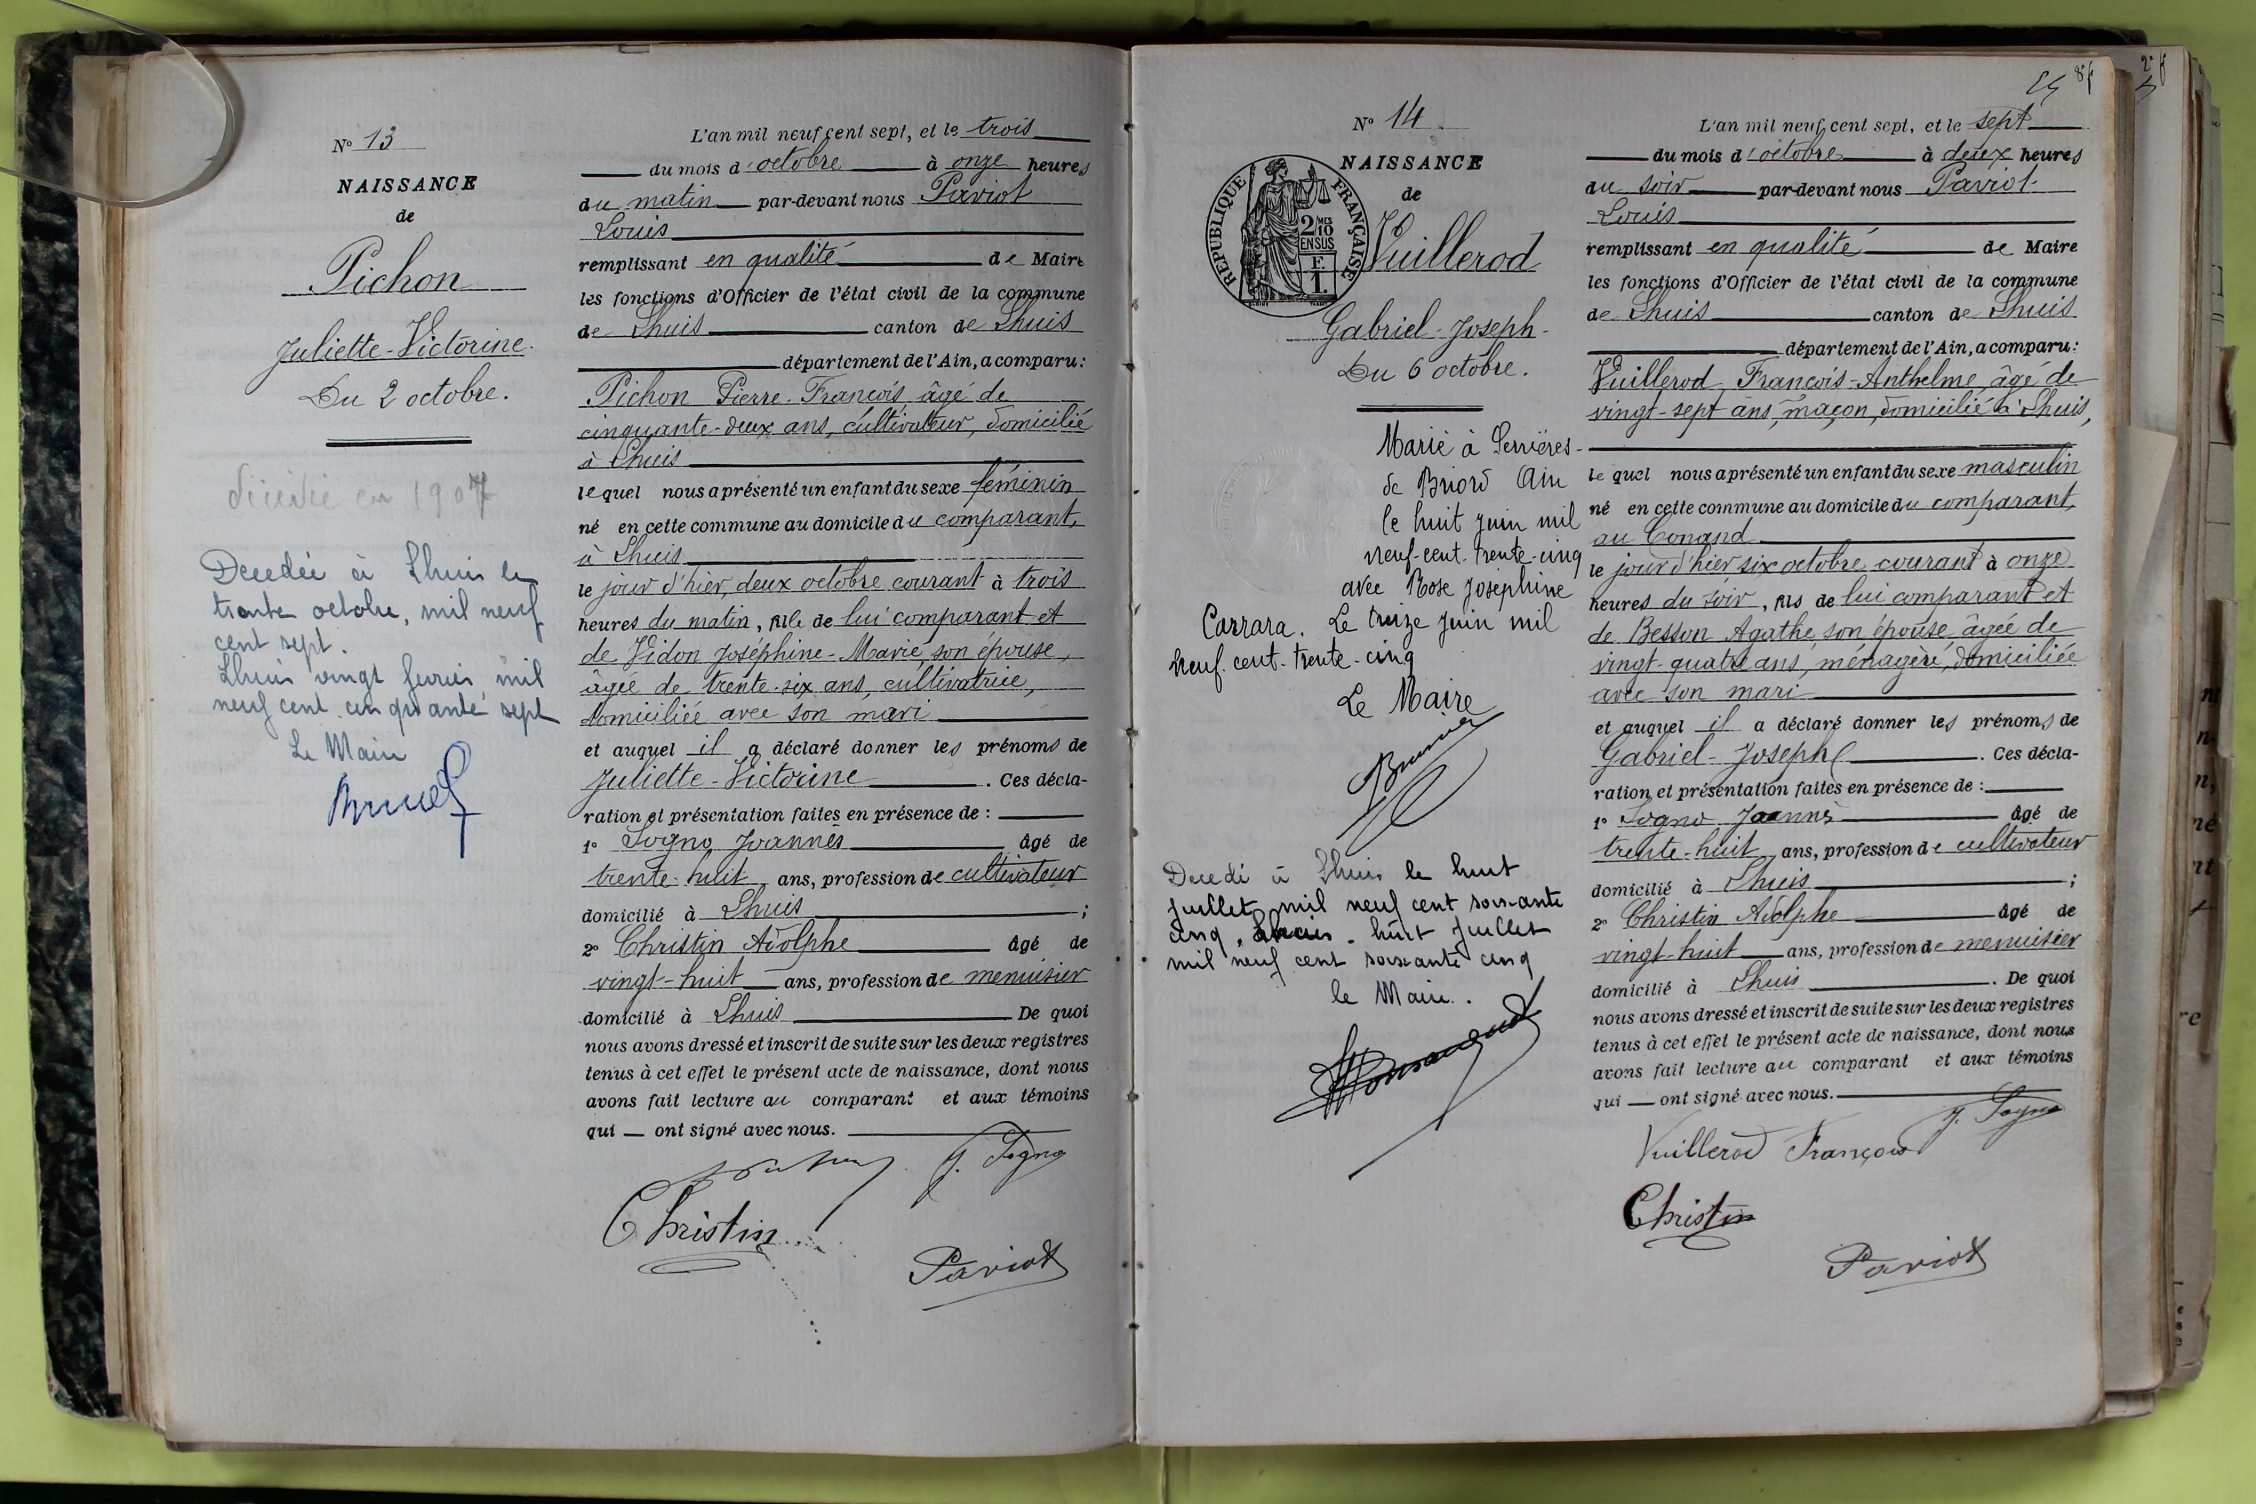 N° 13
NAISSANCE
de
Pichon
Juliette-Victorine.
Du 2 octobre.
décédée en 1907
Decedée à Lhuis le
trente octobre, mil neuf
cent sept.
Lhuis vingt fevrier mil
neuf cent cinquante sept
Le Maire
L'an mil neuf cent sept, et le trois
du mois d'octobre à onze heures
du matin par-devant nous Paviot
Louis
remplissant en qualité de Maire
les fonctions d'Officier de l'état civil de la commune
de Lhuis canton de Lhuis
département de l'Ain, a comparu:
Pichon Pierre-François âgé de
cinquante-deux ans, cultivateur, domicilié
à Lhuis
lequel nous a présenté un enfant du sexe féminin
né en cette commune au domicile du comparant,
à Lhuis
le jour d'hier, deux octobre courant à trois
heures du matin, fille de lui comparant et
de Vidon Joséphine-Marie son épouse,
âgée de trente-six ans, cultivatrice,
domiciliée avec son mari
et auquel il a déclaré donner les prénoms de
Juliette-Victorine. Ces décla-
ration et présentation faites en présence de :
1° Sogno Joannès âgé de
trente-huit ans, profession de cultivateur
domicilié à Lhuis ;
2° Christin Adolphe âgé de
vingt-huit ans, profession de menuisier
domicilié à Lhuis De quoi
nous avons dressé et inscrit de suite sur les deux registres
tenus à cet effet le présent acte de naissance, dont nous
avons fait lecture au comparant et aux témoins
qui ont signé avec nous.
J. Sogno
Christin
Paviot
N° 14
NAISSANCE
de
RÉPUBLIQUE FRANÇAISE
2 MES
10
EN SUS
F.
1.
Vuillerod
Gabriel-Joseph-
Du 6 octobre.
Marié à Serrières-
de Briord Ain
le huit juin mil
neuf-cent-trente-cinq
avec Rose Joséphine
Carrara. Le treize juin mil
neuf-cent-trente-cinq
Le Maire
Decedé à Lhuis le huit
juillet mil neuf cent soixante
cinq. Lhuis. huit juillet
mil neuf cent soixante cinq
le Maire.
L'an mil neuf cent sept, et le sept
du mois d'octobre à deux heures
du soir par-devant nous Paviot
Louis
remplissant en qualité de Maire
les fonctions d'Officier de l'état civil de la commune
de Lhuis canton de Lhuis
département de l'Ain, a comparu:
Vuillerod François-Anthelme âgé de
vingt-sept ans, maçon, domicilié à Lhuis,
lequel nous a présenté un enfant du sexe masculin
né en cette commune au domicile du comparant,
au Conand
le jour d'hier six octobre courant à onze
heures du soir, fils de lui comparant et
de Besson Agathe son épouse âgée de
vingt-quatre ans, ménagère, domiciliée
avec son mari
et auquel il a déclaré donner les prénoms de
Gabriel-Joseph. Ces décla-
ration et présentation faites en présence de :
1° Sogno Joannès âgé de
trente-huit ans, profession de cultivateur
domicilié à Lhuis ;
2° Christin Adolphe âgé de
vingt-huit ans, profession de menuisier
domicilié à Lhuis. De quoi
nous avons dressé et inscrit de suite sur les deux registres
tenus à cet effet le présent acte de naissance, dont nous
avons fait lecture au comparant et aux témoins
qui ont signé avec nous.
J. Sogno
Vuillerod François
Christin
Paviot